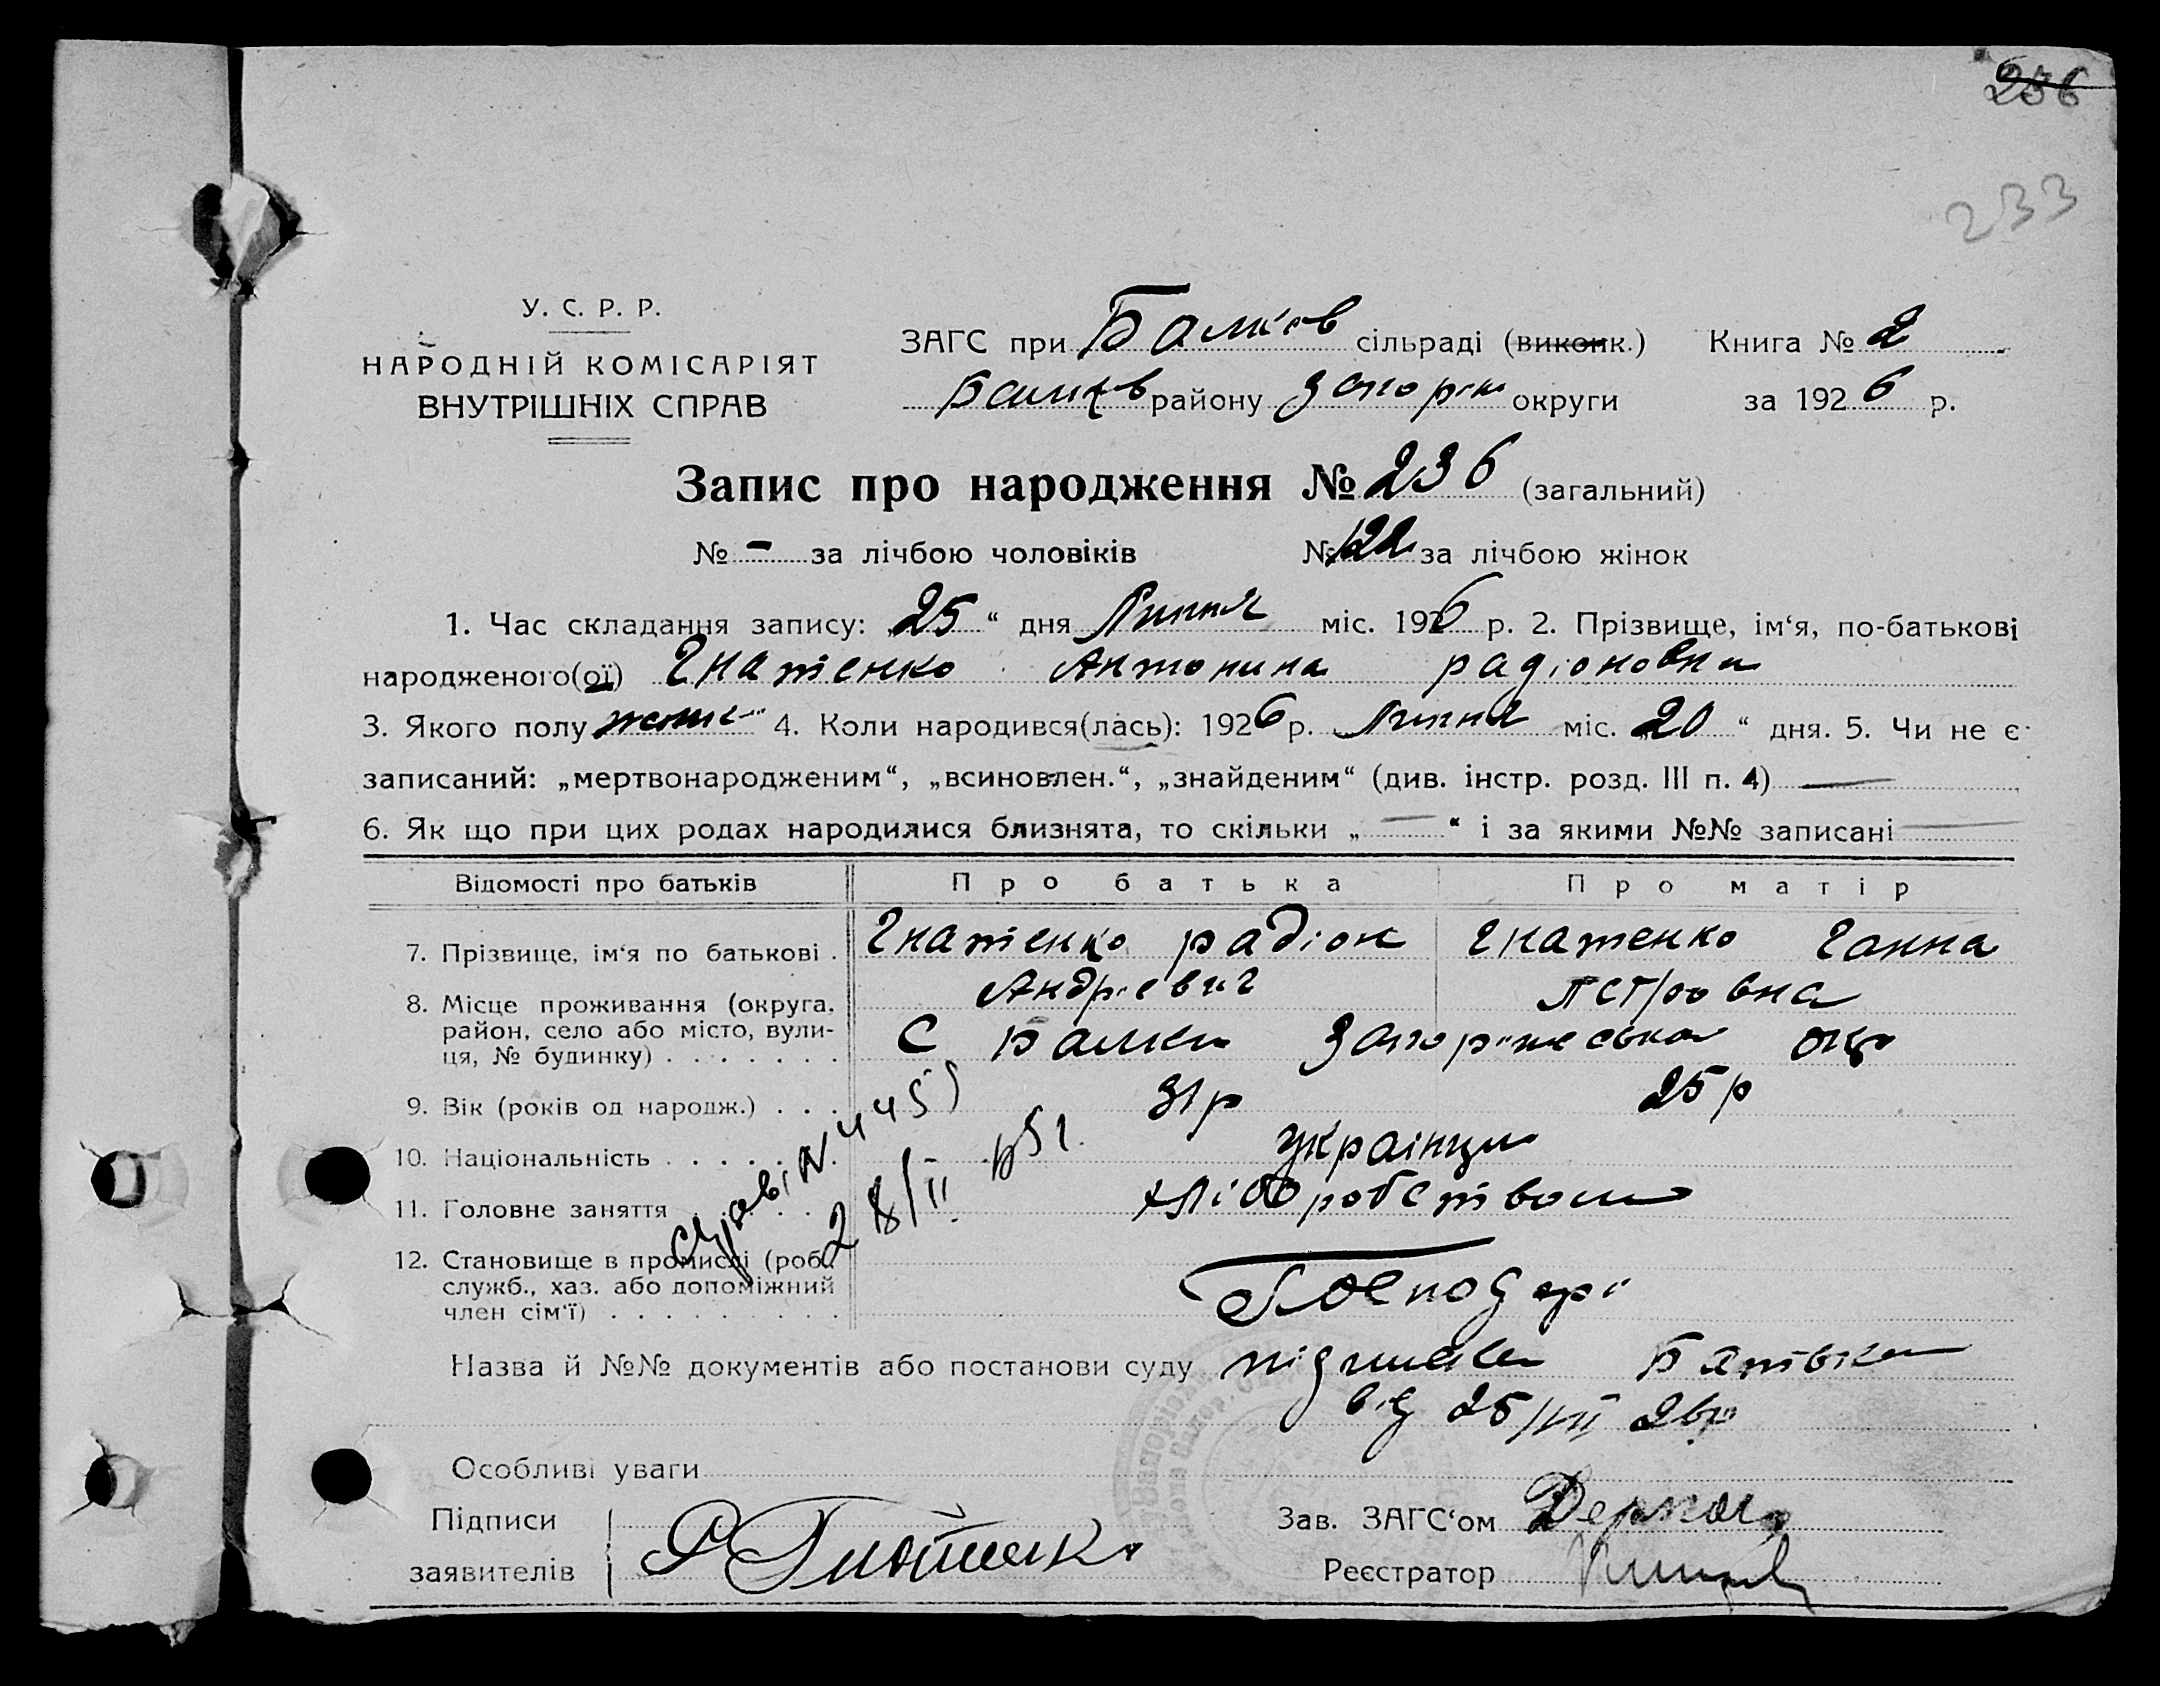 236
233
У. С. Р. Р.
НАРОДНІЙ КОМІСАРІЯТ
ВНУТРІШНІХ СПРАВ
ЗАГС при Балків сільраді (виконк.) Книга № 2
Балків району Запоріж округи за 1926 р.
Запис про народження № 236 (загальний)
№ - за лічбою чоловіків № 122 за лічбою жінок
1. Час складання запису: „25“ дня Липня міс. 1926 р. 2. Прізвище, ім‘я, по-батькові
народженого(ої) Гнатенко Антонина радіоновна
3. Якого полу 4. Коли народився(лась): 1926 р. Липня міс. „20“ дня. 5. Чи не є
записаний: „мертвонародженим“, „всиновлен.“, „знайденим“ (див. інстр. розд. III п. 4) —
6. Як що при цих родах народилися близнята, то скільки „—“ і за якими №№ записані —
Відомості про батьків Про батька Про матір
7. Прізвище, ім‘я по батькові . Гнатенко радіон Гнатенко Ганна
Андрієвич Петровна
8. Місце проживання (округа,
район, село або місто, вули-
ця, № будинку) . . . . . . . С Балки Запоріжська окр
9. Вік (років од народж.) . . . 31р 25р
10. Національність . . . . . . . українци
11. Головне заняття . . . . . . хліборобством
12. Становище в промислі (роб.,
служб., хаз. або допоміжний
член сім‘ї) . . . . . . . . . Господарі
28/II
Назва й №№ документів або постанови суду підписка Батька
від 25/VII 26р
Особливі уваги
Підписи
заявителів Р Гнатенко
Зав. ЗАГС‘ом
Реєстратор